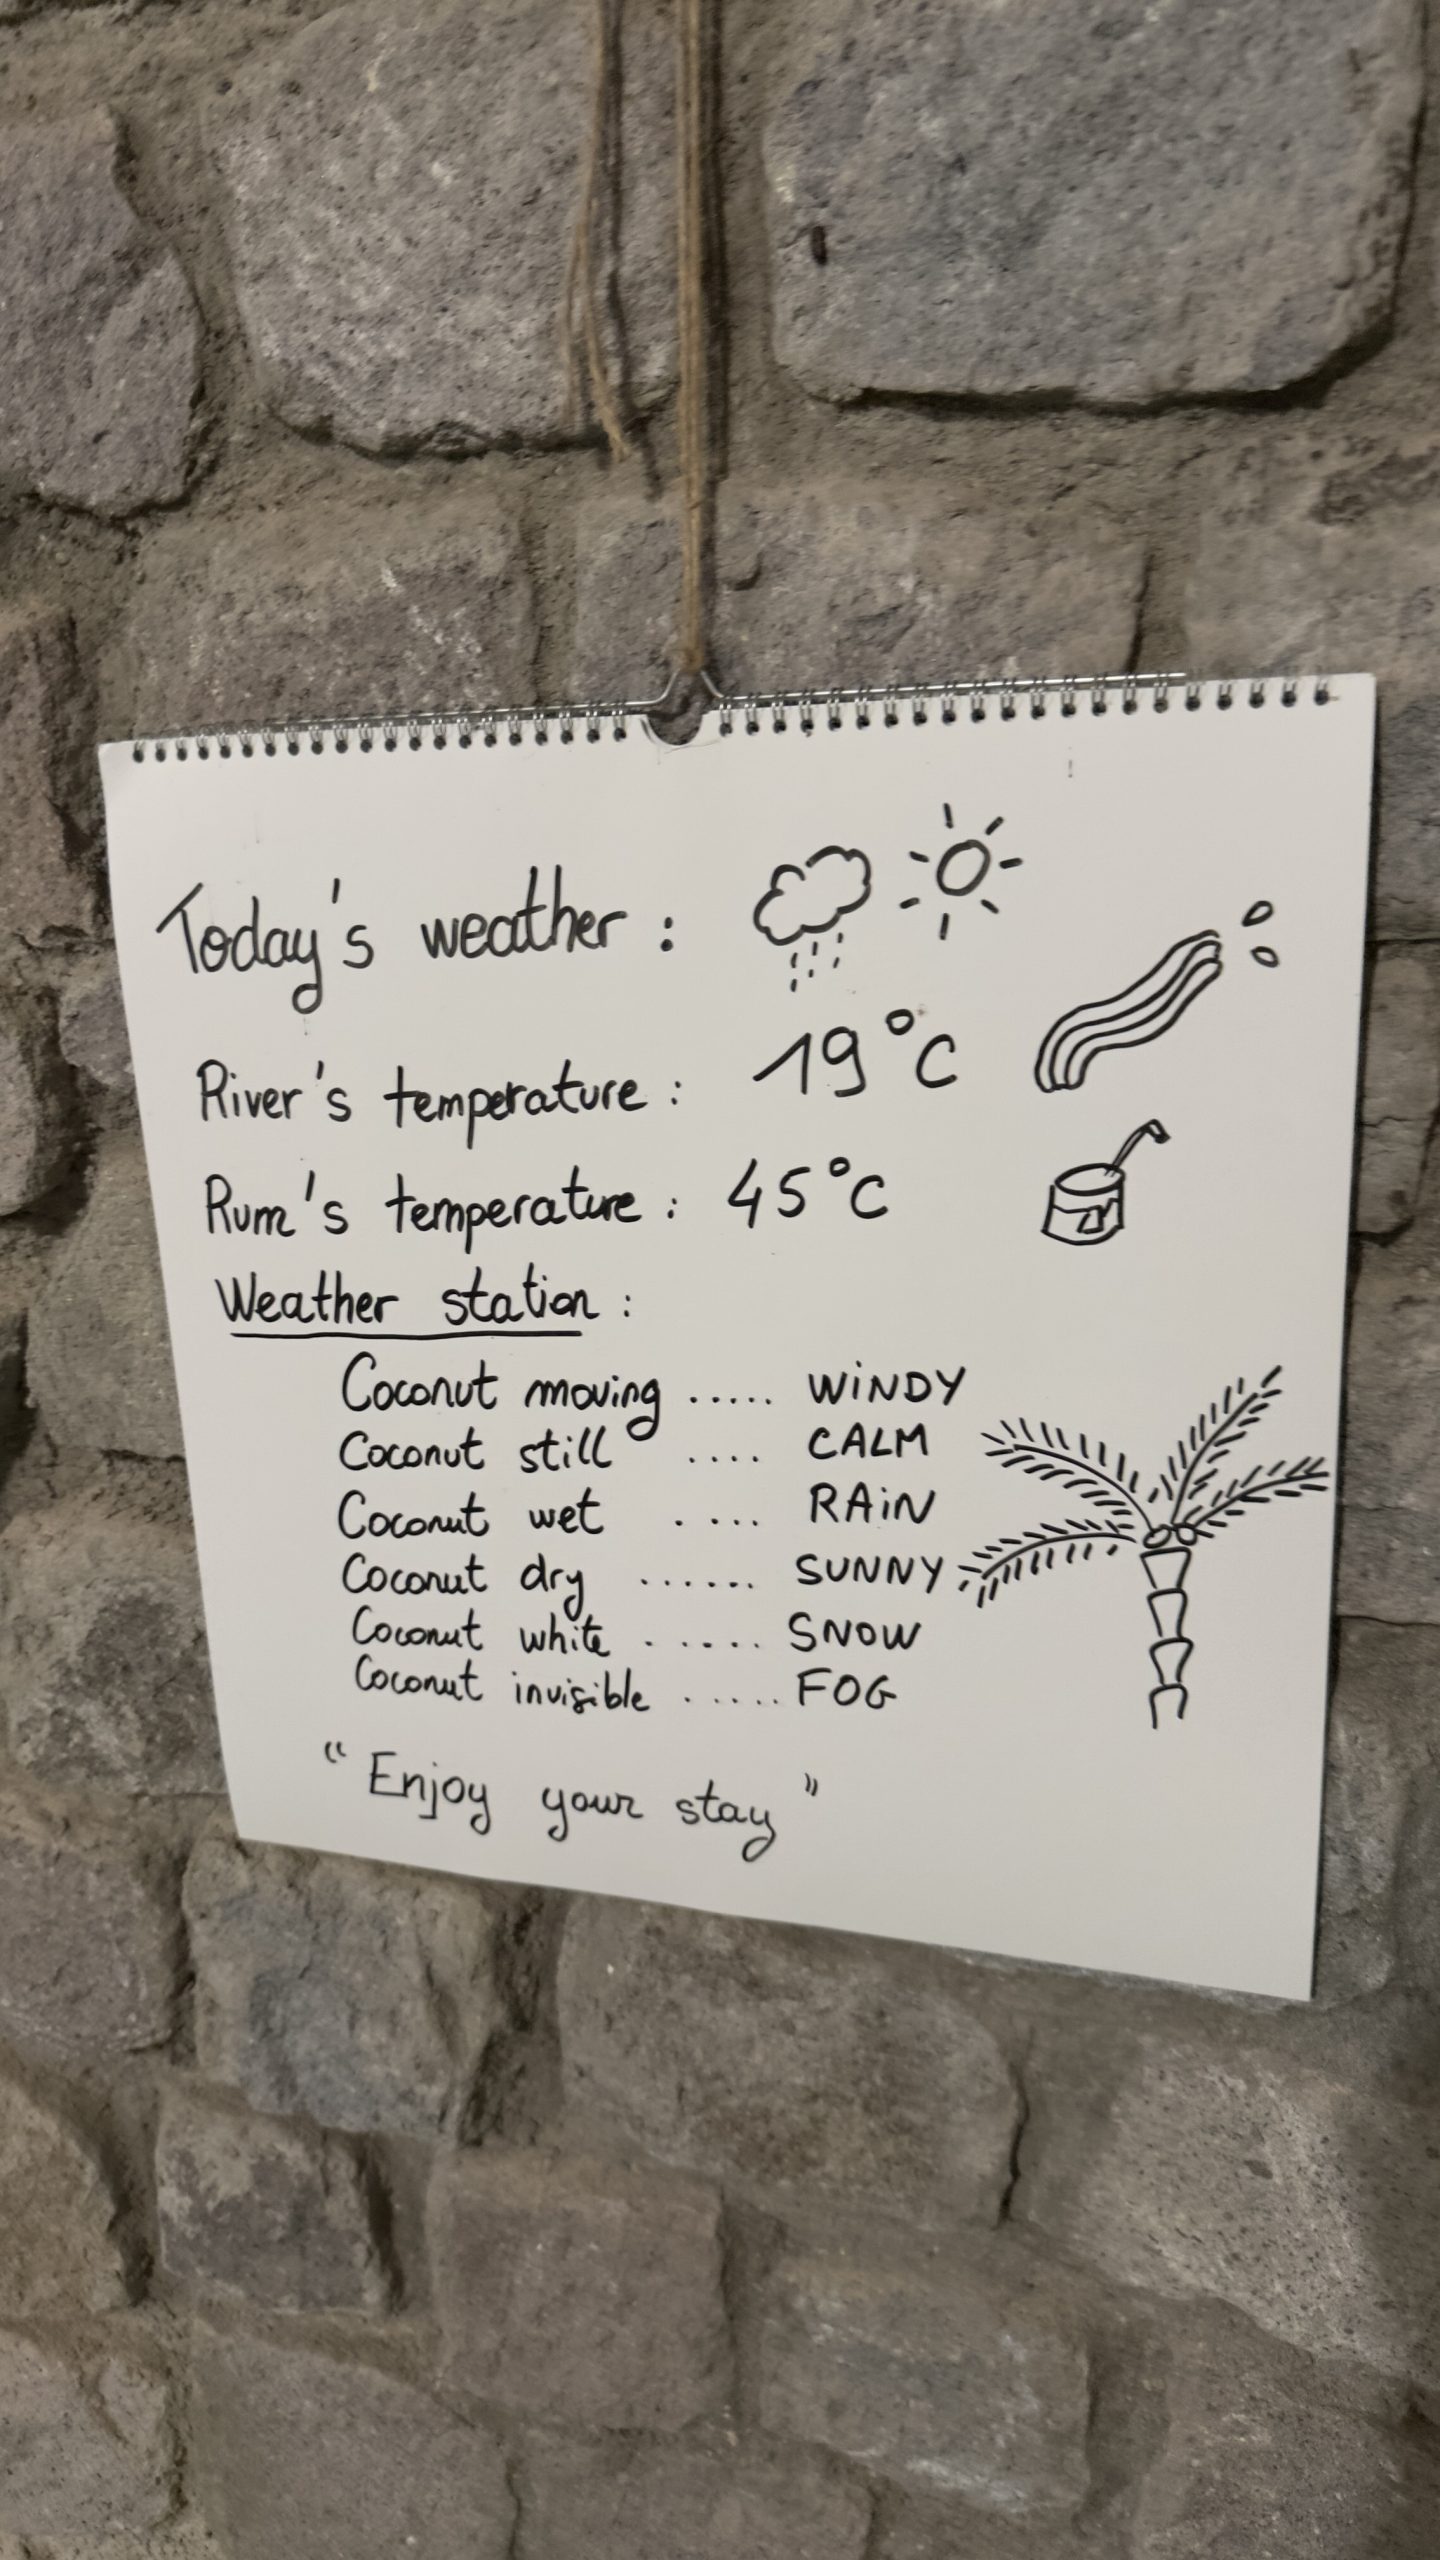 Today's weather :
River's temperature : 19°C
Rum's temperature : 45°C
Weather station :
Coconut moving ..... WiNDY
Coconut still .... CALM
Coconut wet .... RAiN
Coconut dry ...... SUNNY
Coconut white ...... SNOW
Coconut invisible ..... FOG
“Enjoy your stay”